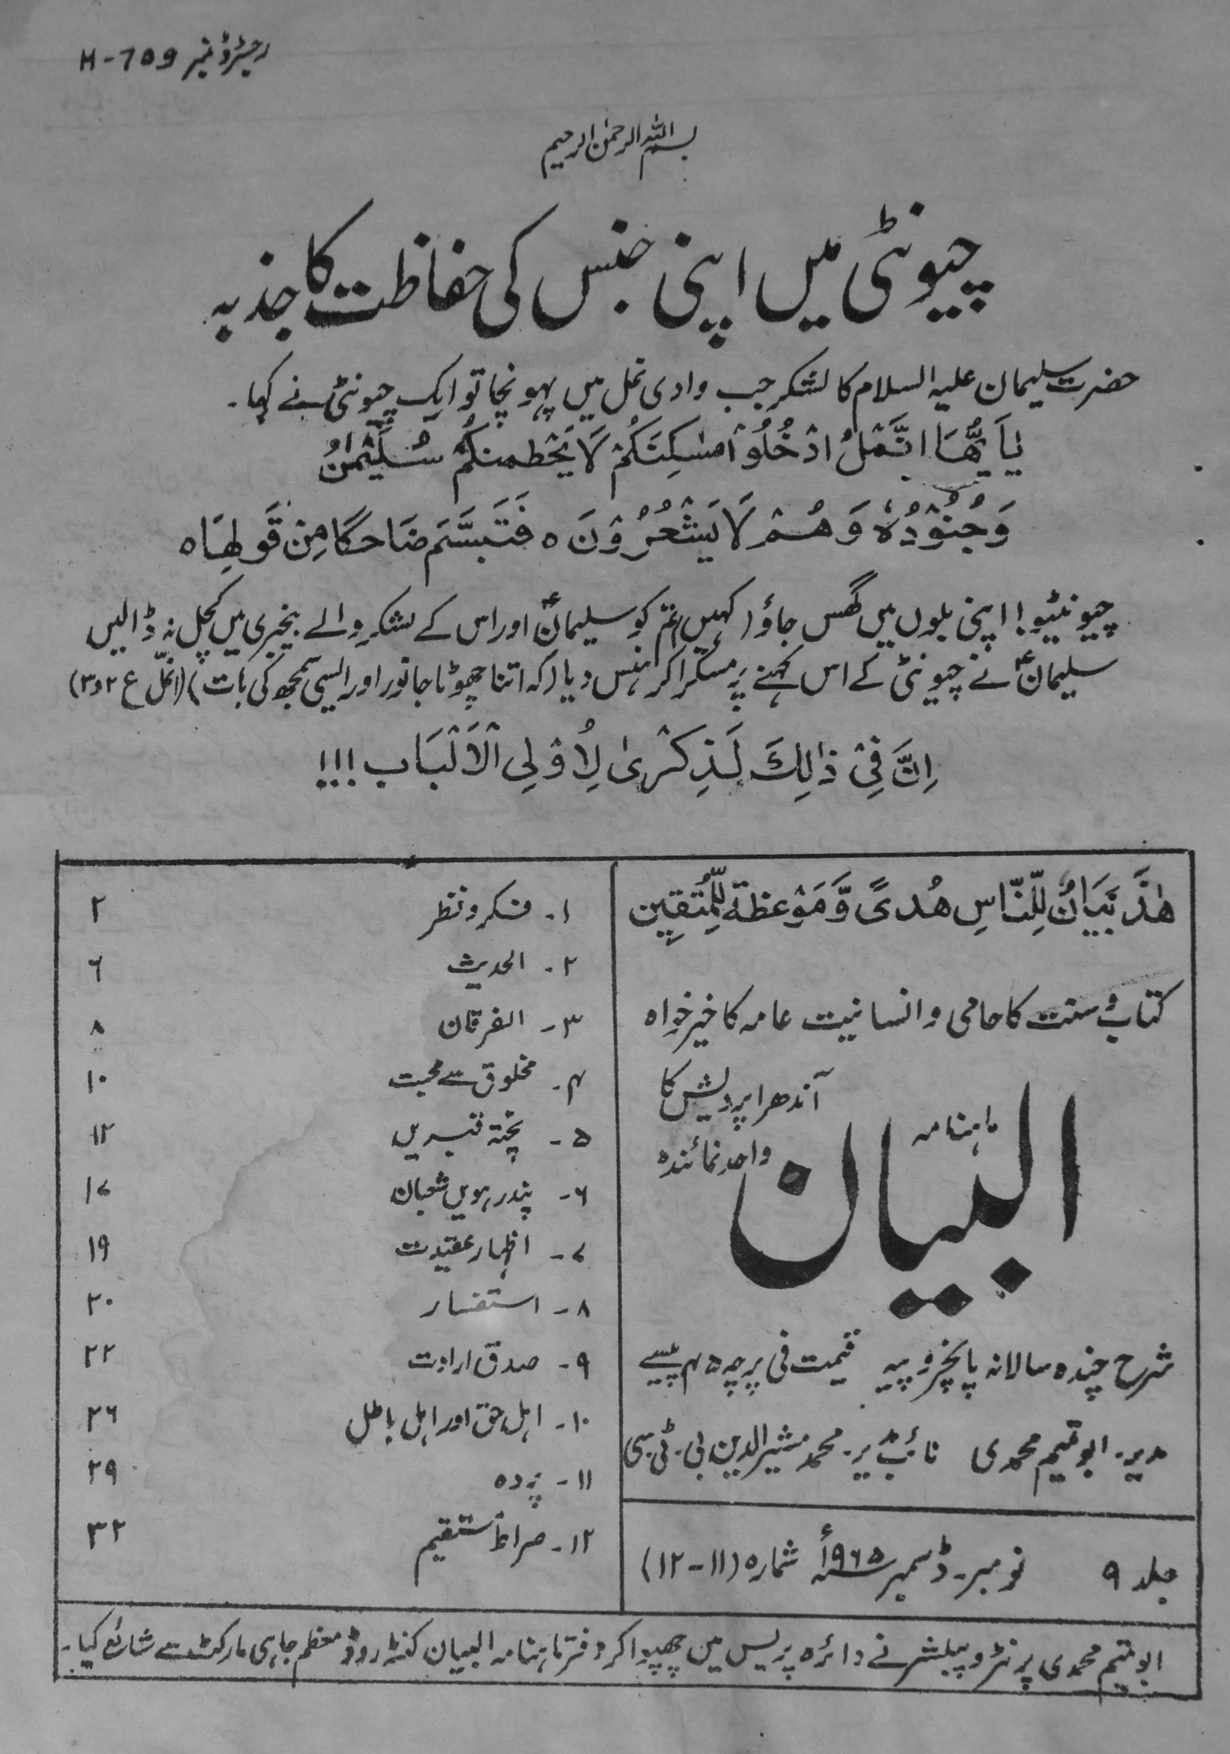 رجسٹرڈ نمبر H-709
بسم اللہ الرحمٰن الرحیم
چیونٹی میں اپنی جنس کی حفاظت کا جذبہ
حضرت سلیمان علیہ السلام کا لشکر جب وادی نمل میں پہونچا تو ایک چیونٹی نے کہا۔
یٰاَیُّھَا النَّمْلُ ادْخُلُوْا مَسٰکِنَکُمْ لَا یَحْطِمَنَّکُمْ سُلَیْمٰنُ
وَجُنُوْدُہٗ وَھُمْ لَا یَشْعُرُوْنَ ہ فَتَبَسَّمَ ضَاحِکًا مِنْ قَوْلِھَا ہ
چیونٹیو! اپنی بلوں میں گھس جاؤ (کہیں) تم کو سلیمانؑ اور اس کے لشکر والے بیخبری میں کچل نہ ڈالیں
سلیمانؑ نے چیونٹی کے اس کہنے پر مسکرا کر ہنس دیا (کہ اتنا چھوٹا جانور اور ایسی سمجھ کی بات) (النمل ع ۲ و ۳)
اِنَّ فِیْ ذٰالِکَ لَذِکْریٰ لِاُوْلِی الْاَلْبَاب !!!
ھٰذَا بَیَانٌ لِّلنَّاسِ ھُدیً وَّمَوْعِظَۃ لِّلْمُتَّقِیْن
کتاب و سنت کا حامی و انسانیت عامہ کا خیر خواہ
آندھرا پردیش کا
واحد نمائندہ
ماہنامہ
البیان
شرح چندہ سالانہ پانچروپیہ قیمت فی پرچہ ۴۵ پیسے
مدیر۔ ابو تمیم محمدی نائب مدیر۔ محمد مشیر الدین بی۔ٹی۔سی
جلد ۹ نومبر۔ ڈسمبر ۱۹۶۵ء شمارہ (۱۱-۱۲)
۱۔ فکر و نظر ۲
۲۔ الحدیث ۶
۳۔ الفرقان ۸
۴۔ مخلوق سے محبت ۱۰
۵۔ پختہ قبریں ۱۲
۶۔ پندرہویں شعبان ۱۷
۷۔ اظہار عقیدت ۱۹
۸۔ استفسار ۲۰
۹۔ صدق ارادت ۲۲
۱۰۔ اہل حق اور اہل باطل ۲۶
۱۱۔ پردہ ۲۹
۱۲۔ صراط مستقیم ۳۲
ابو تمیم محمدی پرنٹر و پبلشر نے دائرہ پریس میں چھپوا کر دفتر ماہنامہ البیان کنٹہ روڈ معظم جاہی مارکٹ سے شائع کیا۔